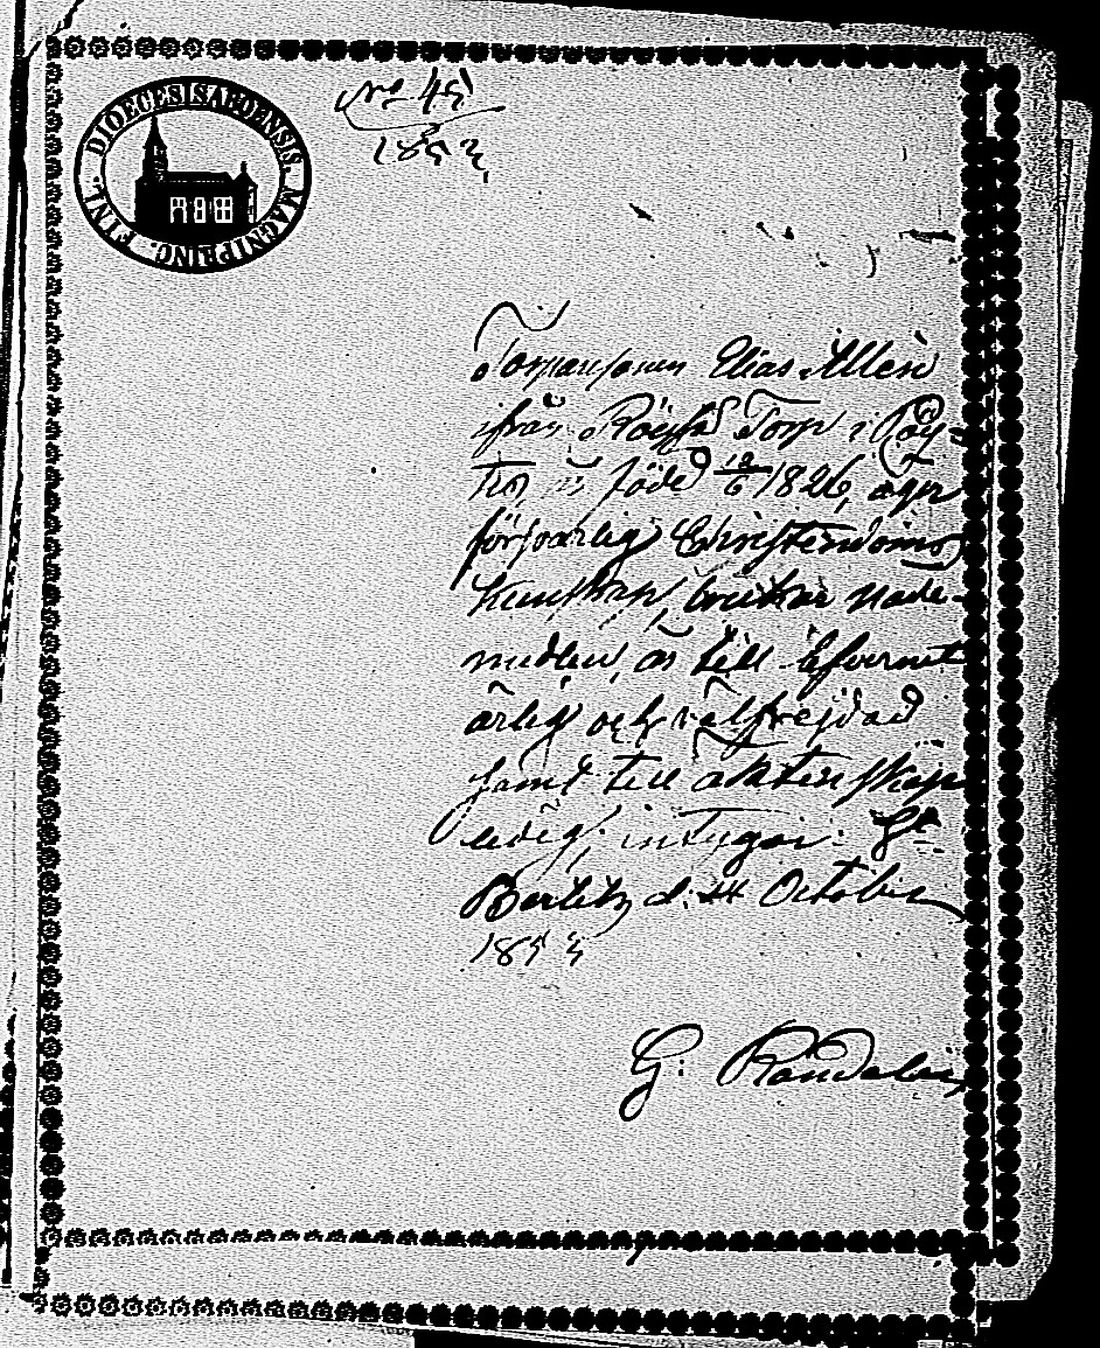 DIOECESIS ABOENSIS. MAGNI PRINC. FINL.
No 45
1853
Torparesonen Elias Allén
ifrån Torp i Röy-
tiö, är född 12/6 1826, äger
försvarlig Christendoms
kunskap, brukar nåde-
medlen, är till lefvernet
ärlig och välfrejdad
samt till äktenskap
ledig; intygar: St
Bertils d. October
1853
G. Randelin